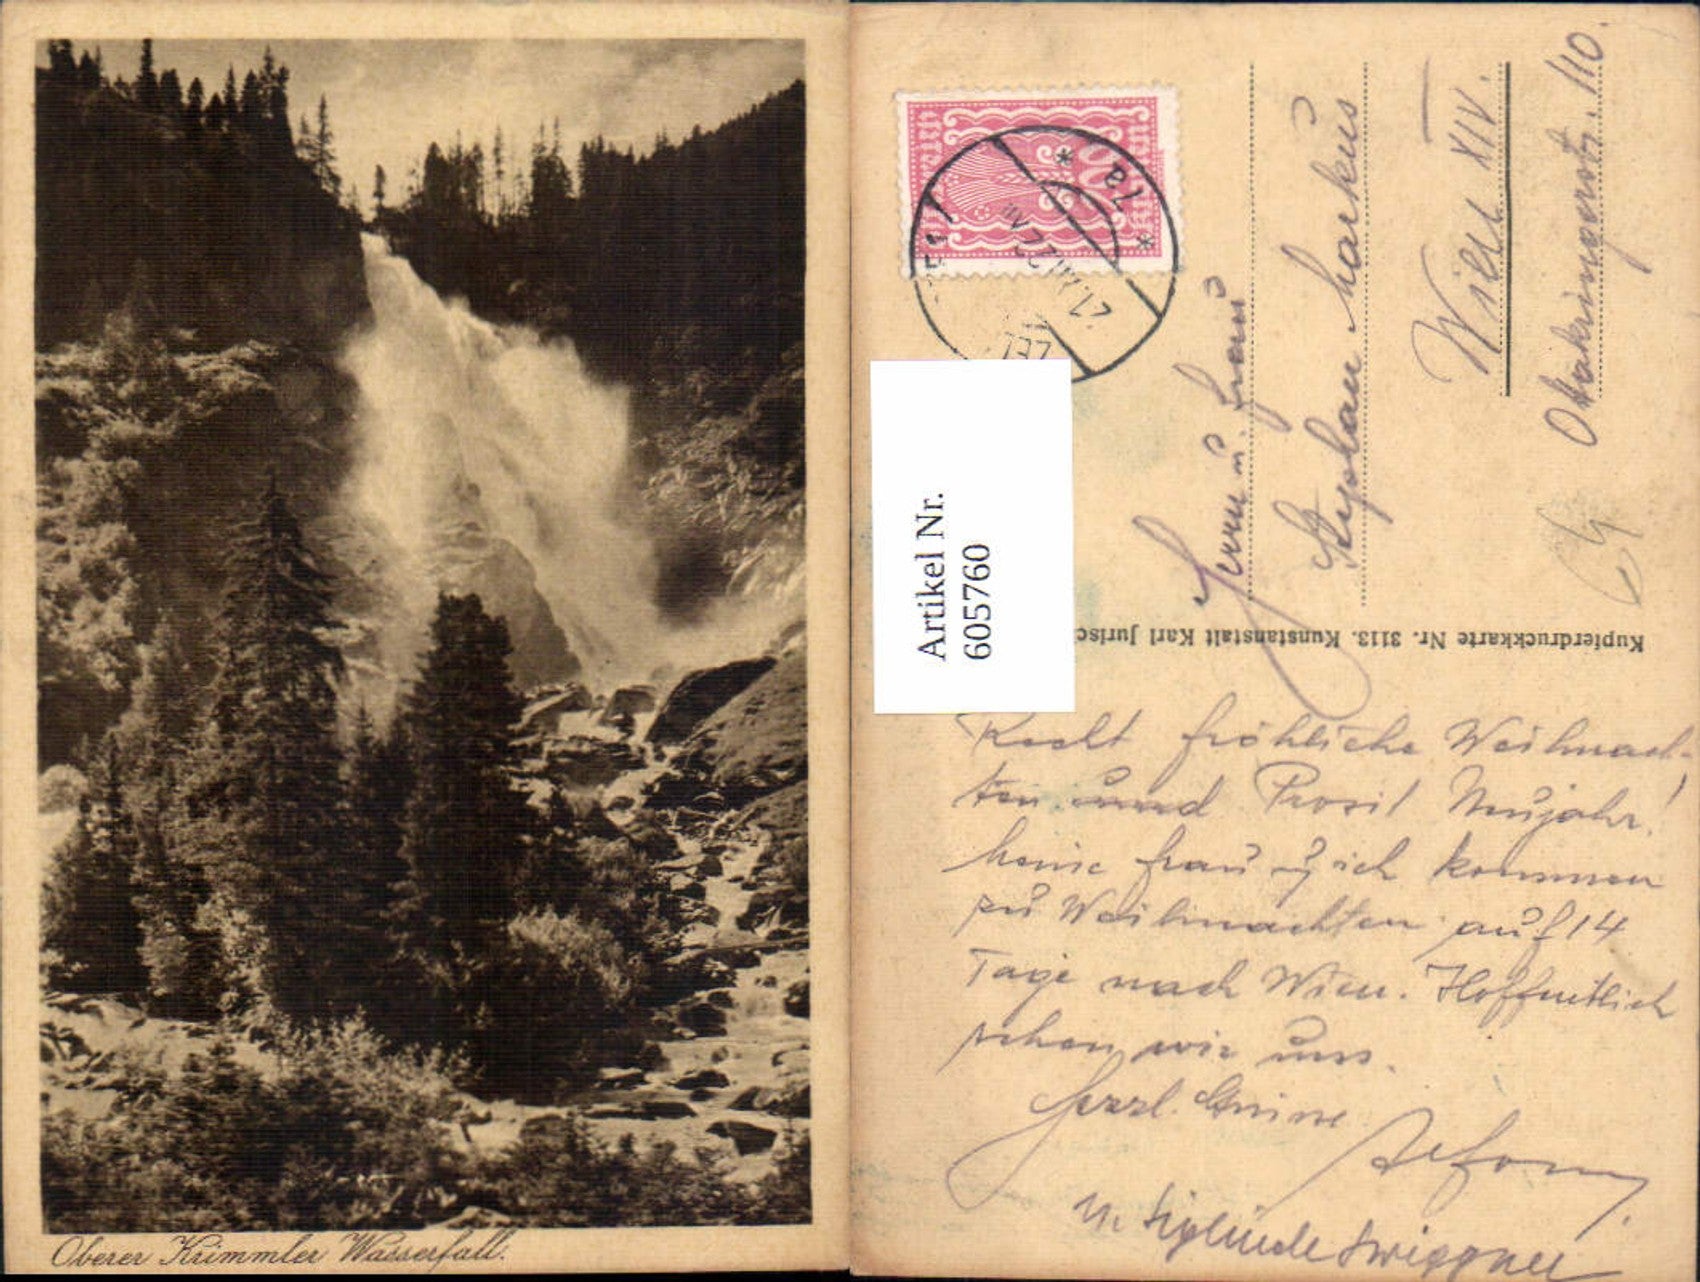 Oberer Krimmler Wasserfall.
Artikel Nr.
605760
7a
Herrn u. Frau
Stephan Markus
Wien XIV.
Ottakringerstr. 110.
Kupferdruckkarte Nr. 3113. Kunstanstalt Karl Jurisc
Recht fröhliche Weihnach-
ten und Prosit Neujahr!
Meine Frau u. ich kommen
zu Weihnachten auf 14
Tage nach Wien. Hoffentlich
sehen wir uns.
Herzl. Grüsse